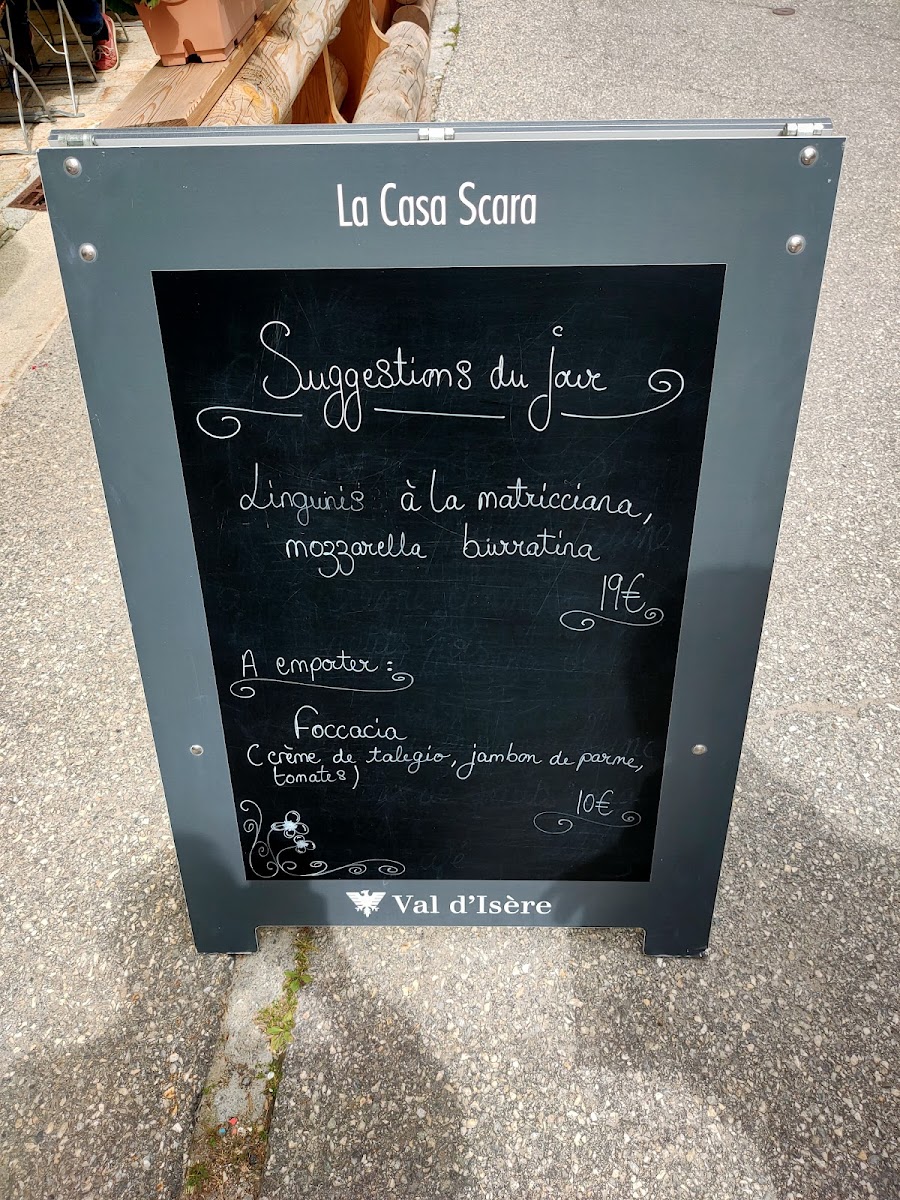 La Casa Scara
Suggestions du jour
Lingunis à la matricciana,
mozzarella burratina
19€
A emporter :
Foccacia
(crème de talegio, jambon de parme,
tomates)
10€
Val d'Isère